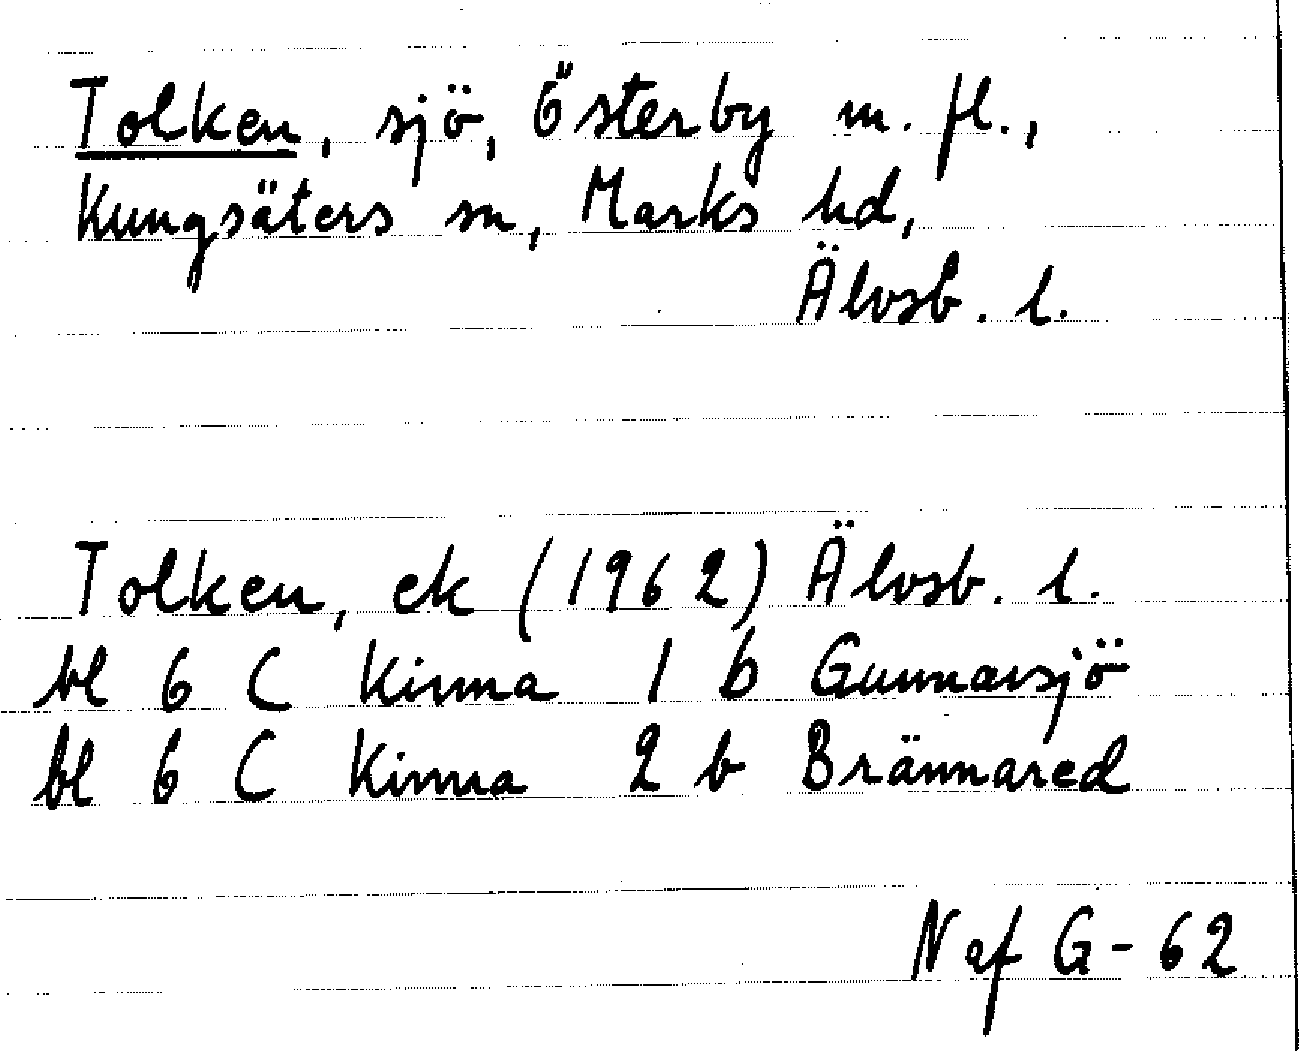 Tolken, sjö, Österby m. fl.,
Kungsäters sn, Marks hd,
Älvsb. l.
Tolken, ek (1962) Älvsb. l.
bl 6 C Kinna 1 b Gunnarsjö
bl 6 C Kinna 2 b Brännared
N af G-62